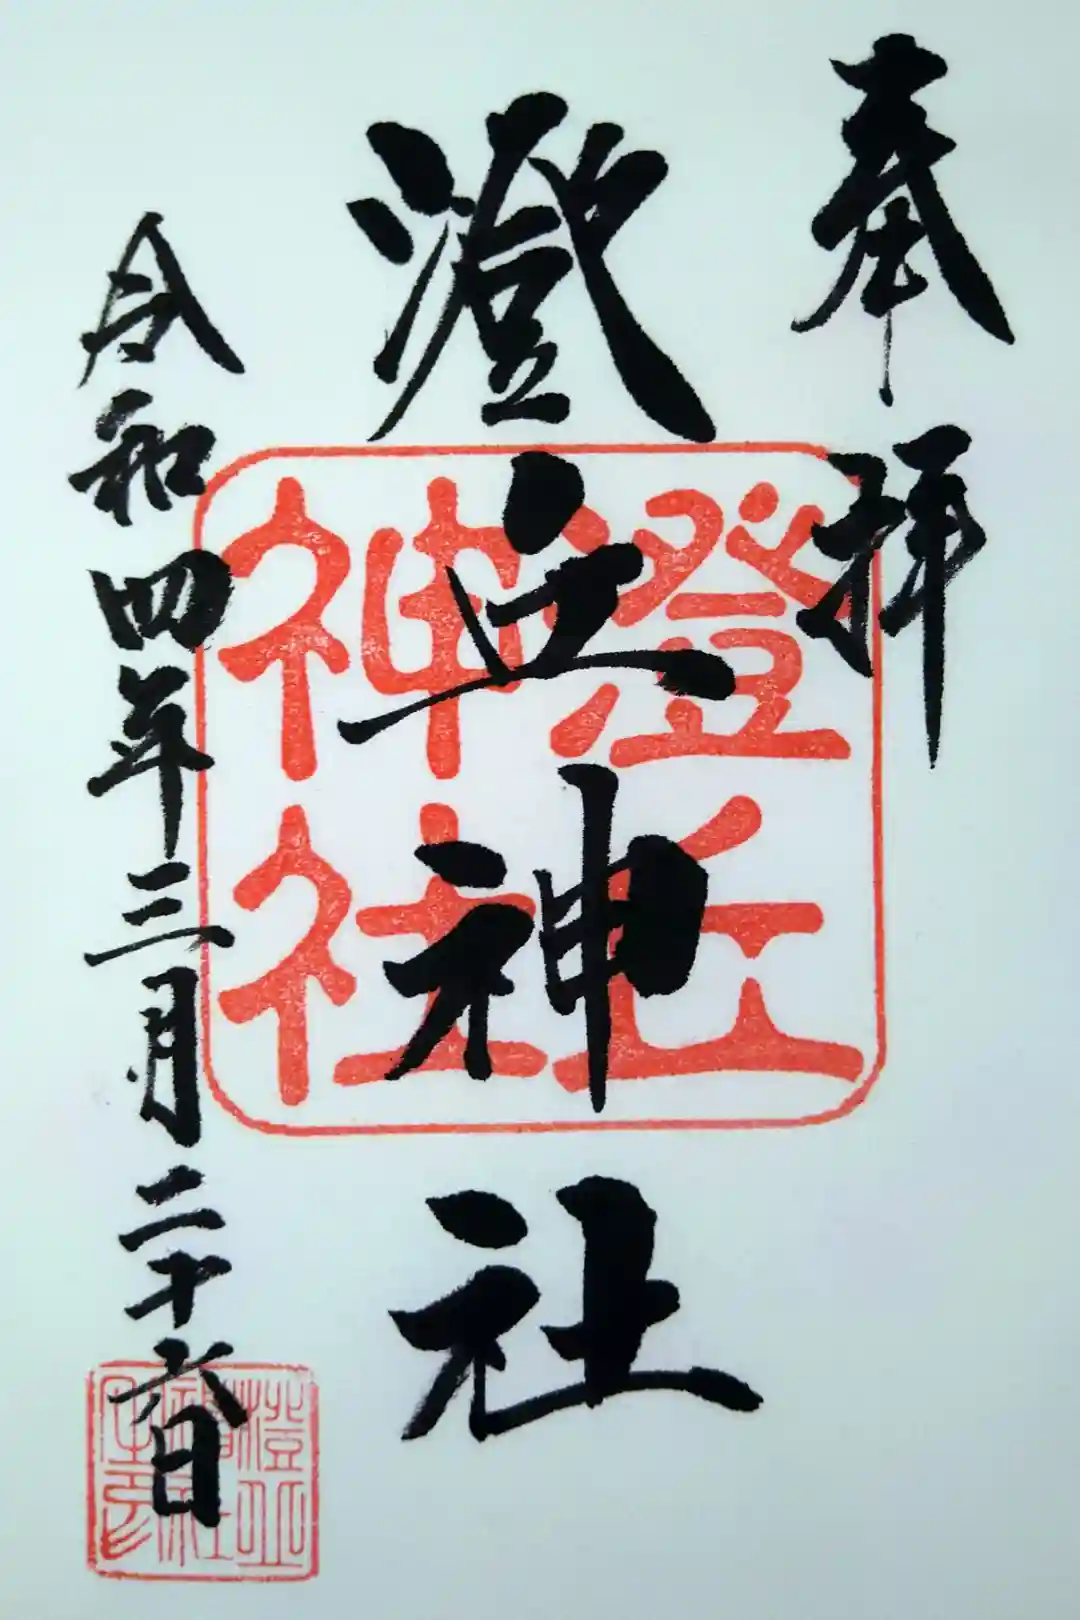 奉拝
澄丘神社
令和四年三月二十六日
澄丘
神社
澄丘
神社